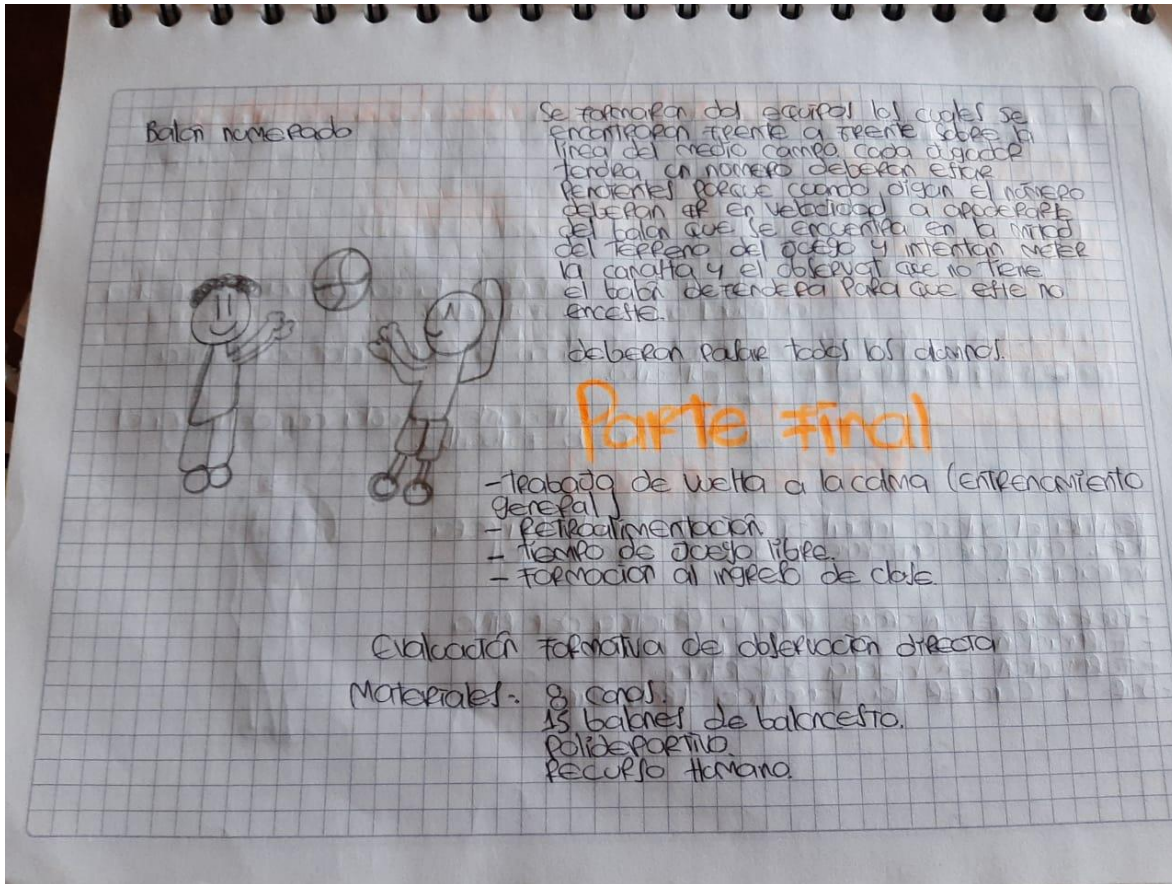 Balón numerado
Se formaran dos equipos los cuales se
encontraran frente a frente sobre la
linea del medio campo. cada jugador
tendra un numero deberan estar
pendientes porque cuando digan el número
deberan ir en velocidad a apoderarse
del balon que se encuentra en la mitad
del terreno del juego y intentan meter
la canasta y el que no tiene
el balón defendera para que este no
enceste.
deberan pasar todos los alumnos.
Parte Final
- trabajo de vuelta a la calma (entrenamiento
general)
- Retroalimentación
- tiempo de juego libre.
- Formación al ingreso de clase.
Evaluación Formativa de observación directa
Materiales: 8 conos.
15 balones de baloncesto.
Polideportivo.
Recurso Humano.